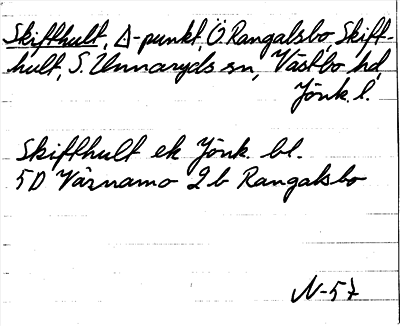 Skifthult, △-punkt, Ö. Rangalsbo, Skift-
hult, S. Unnaryds sn, Västbo hd,
Jönk. l.
Skifthult ek Jönk. bl.
5D Värnamo 2b Rangalsbo
N-57